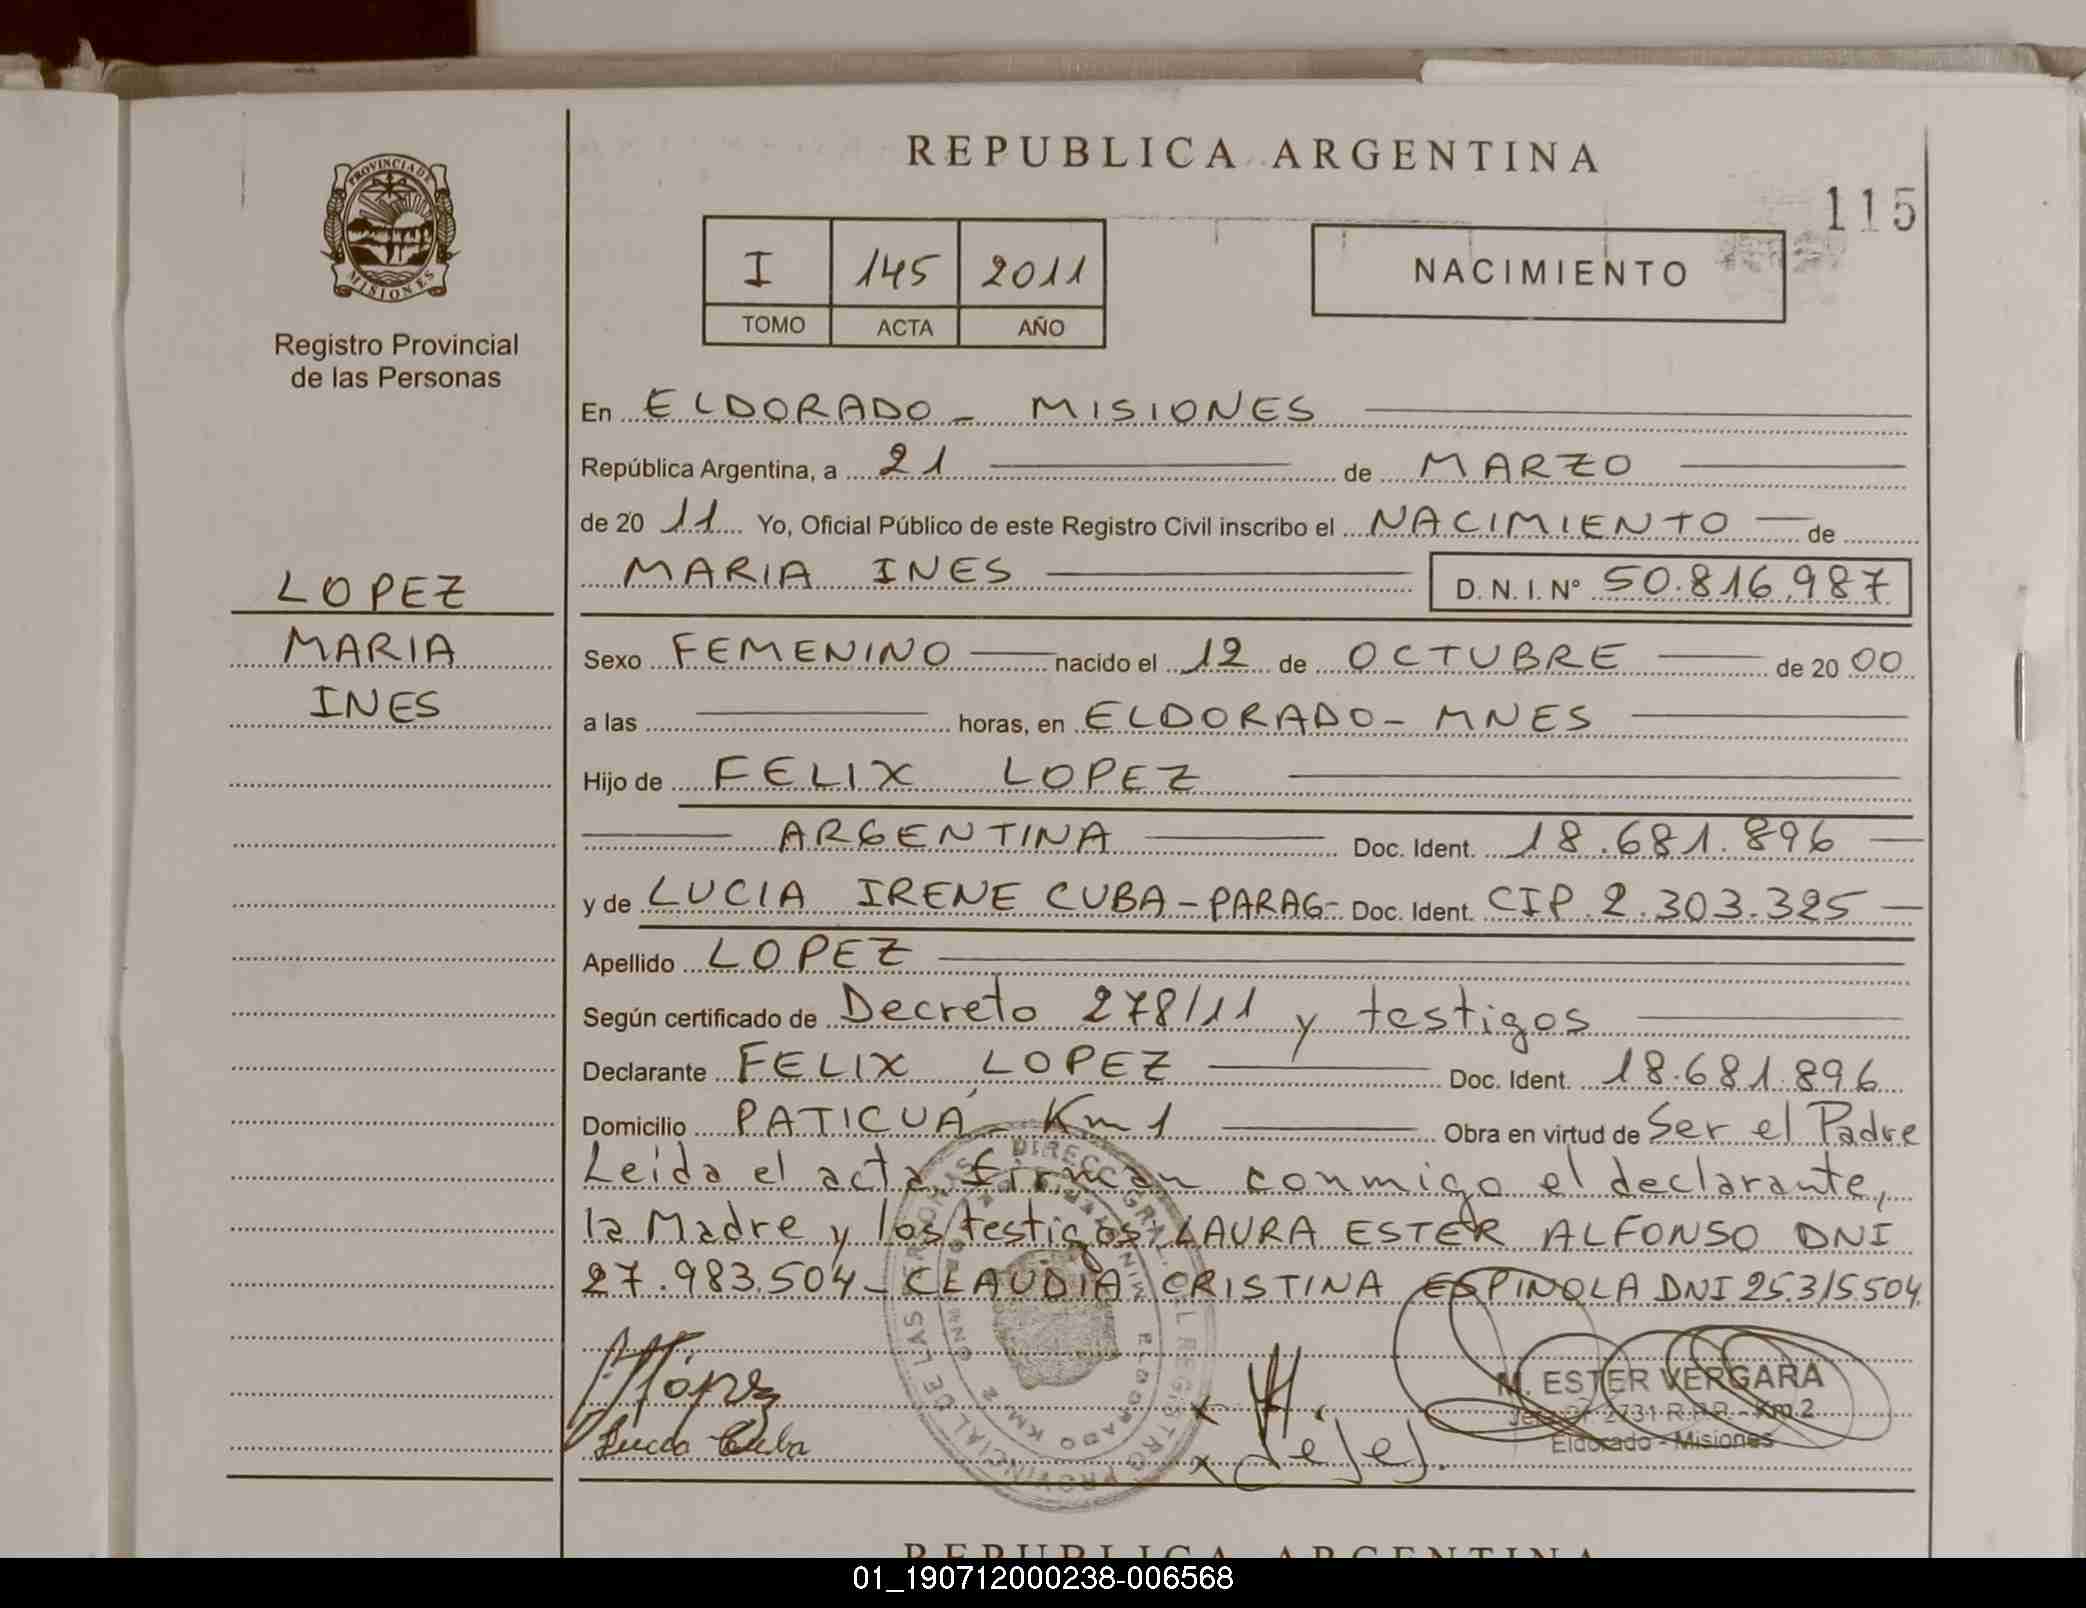 REPUBLICA ARGENTINA
115
PROVINCIA DE MISIONES
Registro Provincial
de las Personas
I 145 2011
TOMO ACTA AÑO
NACIMIENTO
En ELDORADO - MISIONES
República Argentina, a 21 de MARZO
de 20 11 Yo, Oficial Público de este Registro Civil inscribo el NACIMIENTO de
MARIA INES D. N. I. Nº 50.816.987
LOPEZ
MARIA
INES
Sexo FEMENINO nacido el 12 de OCTUBRE de 20 00
a las horas, en ELDORADO - MNES
Hijo de FELIX LOPEZ
ARGENTINA Doc. Ident. 18.681.896
y de LUCIA IRENE CUBA - PARAG - Doc. Ident. CIP 2.303.325
Apellido LOPEZ
Según certificado de Decreto 278/11 y testigos
Declarante FELIX LOPEZ Doc. Ident. 18.681.896
Domicilio PATICUÁ - Km 1 Obra en virtud de Ser el Padre
Leída el acta firman conmigo el declarante,
la Madre y los testigos LAURA ESTER ALFONSO DNI
27.983.504 - CLAUDIA CRISTINA ESPINOLA DNI 25.315.504
López
Lucia Cuba
M. ESTER VERGARA
2731 R.P.P. - Km 2
Eldorado - Misiones
REPUBLICA ARGENTINA
01_190712000238-006568